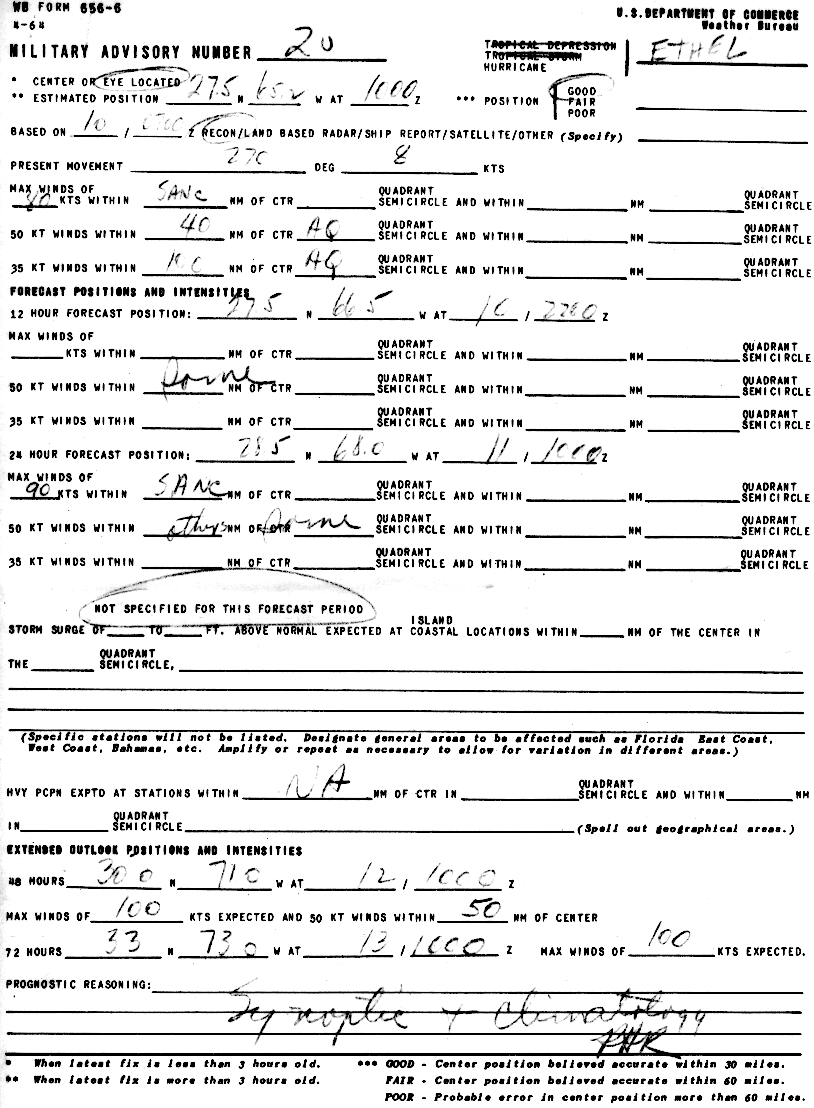 WB FORM 656-6
4-64
U.S. DEPARTMENT OF COMMERCE
Weather Bureau
MILITARY ADVISORY NUMBER 20
TROPICAL DEPRESSION
TROPICAL STORM
HURRICANE
ETHEL
* CENTER OR EYE LOCATED
** ESTIMATED POSITION 27.5 N 65.2 W AT 1000 Z *** POSITION GOOD
FAIR
POOR
BASED ON 10 , Z RECON/LAND BASED RADAR/SHIP REPORT/SATELLITE/OTHER (Specify)
PRESENT MOVEMENT 270 DEG 8 KTS
MAX WINDS OF QUADRANT QUADRANT
KTS WITHIN SANC NM OF CTR SEMICIRCLE AND WITHIN NM SEMICIRCLE
QUADRANT QUADRANT
50 KT WINDS WITHIN 40 NM OF CTR AQ SEMICIRCLE AND WITHIN NM SEMICIRCLE
QUADRANT QUADRANT
35 KT WINDS WITHIN 100 NM OF CTR AQ SEMICIRCLE AND WITHIN NM SEMICIRCLE
FORECAST POSITIONS AND INTENSITIES
12 HOUR FORECAST POSITION: 27.5 N 66.5 W AT 10 , 2200 Z
MAX WINDS OF QUADRANT QUADRANT
KTS WITHIN NM OF CTR SEMICIRCLE AND WITHIN NM SEMICIRCLE
QUADRANT QUADRANT
50 KT WINDS WITHIN NM OF CTR SEMICIRCLE AND WITHIN NM SEMICIRCLE
QUADRANT QUADRANT
35 KT WINDS WITHIN NM OF CTR SEMICIRCLE AND WITHIN NM SEMICIRCLE
24 HOUR FORECAST POSITION: 28.5 N 68.0 W AT 11 , 1000 Z
MAX WINDS OF QUADRANT QUADRANT
90 KTS WITHIN SANC NM OF CTR SEMICIRCLE AND WITHIN NM SEMICIRCLE
QUADRANT QUADRANT
50 KT WINDS WITHIN NM OF CTR SEMICIRCLE AND WITHIN NM SEMICIRCLE
QUADRANT QUADRANT
35 KT WINDS WITHIN NM OF CTR SEMICIRCLE AND WITHIN NM SEMICIRCLE
NOT SPECIFIED FOR THIS FORECAST PERIOD
ISLAND
STORM SURGE OF TO FT. ABOVE NORMAL EXPECTED AT COASTAL LOCATIONS WITHIN NM OF THE CENTER IN
QUADRANT
THE SEMICIRCLE,
(Specific stations will not be listed. Designate general areas to be affected such as Florida East Coast,
West Coast, Bahamas, etc. Amplify or repeat as necessary to allow for variation in different areas.)
QUADRANT
HVY PCPN EXPTD AT STATIONS WITHIN NA NM OF CTR IN SEMICIRCLE AND WITHIN NM
QUADRANT
IN SEMICIRCLE (Spell out geographical areas.)
EXTENDED OUTLOOK POSITIONS AND INTENSITIES
48 HOURS 30 0 N 71 0 W AT 12 , 1000 Z
MAX WINDS OF 100 KTS EXPECTED AND 50 KT WINDS WITHIN 50 NM OF CENTER
72 HOURS 33 N 73 0 W AT 13 , 1000 Z MAX WINDS OF 100 KTS EXPECTED.
PROGNOSTIC REASONING:
Synoptic + Climatology
PHK
* When latest fix is less than 3 hours old. *** GOOD - Center position believed accurate within 30 miles.
** When latest fix is more than 3 hours old. FAIR - Center position believed accurate within 60 miles.
POOR - Probable error in center position more than 60 miles.